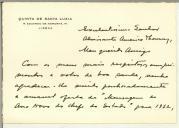 QUINTA DE SANTA LUZIA
LISBOA
Excelentíssimo Senhor
Almirante Américo Thomaz,
Meu querido Amigo
Com os meus mais respeitosos cumprimentos
e votos de boa saúde, venho
agradecer-lhe muito penhoradamente
a amável oferta da "Mensagem de
Ano Novo do Chefe do Estado" para 1972,